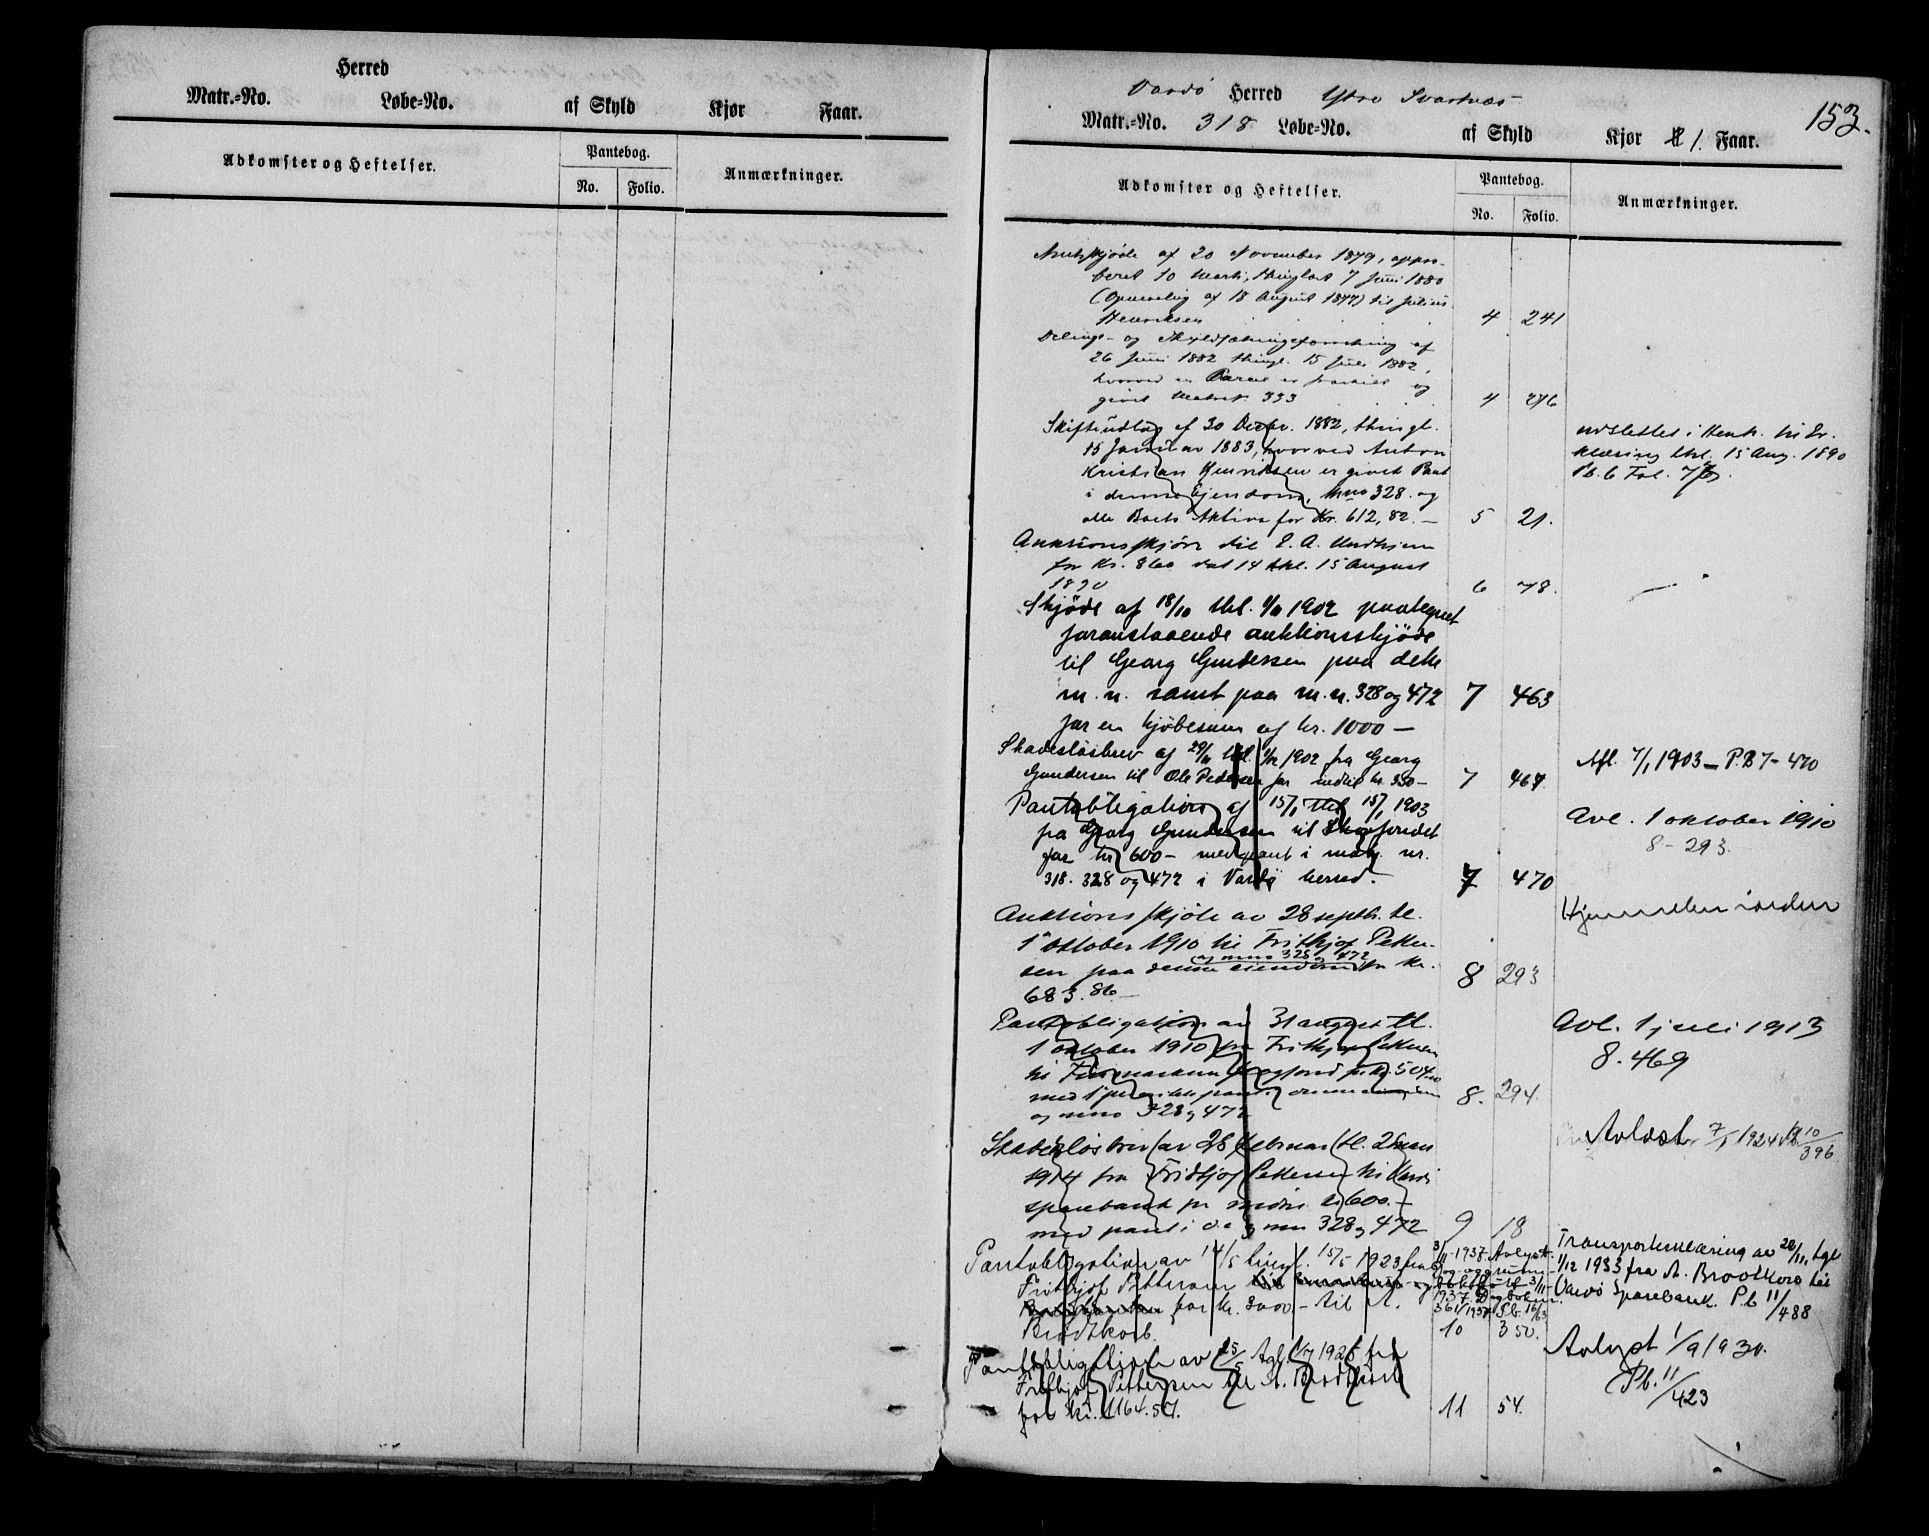 Herred
Matr.-No. Løbe-No. af Skyld Kjør Faar.
Adkomster og Heftelser. Pantebog. Anmærkninger.
No. Folio.
153.
Vardö Herred Ytre Svartnæs
Matr.-No. 318 Løbe-No. af Skyld Kjør 1. Faar.
Adkomster og Heftelser. Pantebog. Anmærkninger.
No. Folio.
af 20 November 1879, appro-
beret 10 Marts, thinglæst 7 Juni 1880
af 18 August 1877) til Julius
Henriksen 4 241
Delings- og Skyldsætningsforretning af
26 Juni 1882 thingl. 15 Juli 1882,
hvorved en Parcel er fraskilt og
givet Matr 333 4 276
Skifteudlæg af 30 Decbr. 1882, thingl.
15 Januar 1883, hvorved Anton
Kristian Henriksen er givet Pant
i denne Ejendom, Mno 328 og
alle Boets Aktiva for Kr. 612,82. — 5 21.
udslettet i Henh. til Er-
klæring thl. 15 Aug. 1890
Pb. 6 Fol.
Auktionsskjöde til E. A.
for Kr. dat 14 thl. 15 August
1890 6 78.
Skjöde af 18/10 thl. 1902 paategnet
foranstaaende auktionsskjöde
til Georg Gundersen paa dette
m. n. samt paa m. n. 328 og 472 7 463
for en kjöbesum af kr. 1000 —
Skadeslösbrev af 29/11 thl. 1/12 1902 fra Georg
Gundersen til Ole Pedersen for indtil kr. 350 — 7 464.
Afl. 7/1 1903 — P.B 7 - 470
Pantobligation af 15/1 thl 15/1 1903
fra Georg Gundersen til
for kr 600 — med pant i matr. nr.
318. 328 og 472 i Vardö herred. 7 470
Avl. 1 oktober 1910
8 - 293.
Auktionsskjöte av 28 septb. tl.
1 oktober 1910 til Frithjof Petter-
og mno 328 og 472
sen paa denne eiendom for kr.
683.86 — 8 293
Hjemmelen i orden
Pantobligation av 31 august tl.
1 oktober 1910 fra Frithjof Pettersen
til Finmarkens
med 1 prioritets pant i denne eiendom
og mno 328 og 472 8. 294.
Avl. 1 juli 1913
8. 469
Skadeslösbrev av 28 februar tl. 2 mars
1914 fra Fridtjof Pettersen til Vardö
sparebank for indtil kr 600. —
med pant i d. e og mno 328 og 472 9 18
Avlæst 7/1 1924 Pb 10/396
Pantobligation av 14/5 tingl. 15/5 1923 fra
Fritjof Pettersen
for kr. 3000. — til A.
Brodtkorb. 10 350.
3/11-1937. Avlyst
Dagboknr.
361/1937 Pb. 16/63
Transporterklæring av 28/11, tgl
1/12 1933 fra A. Brodtkorb til
Vardö Sparebank. P.b 11/488
Pantobligation av 25/5 tgl. 1926 fra
Fritjof Pettersen til A. Brodtkorb
for kr. 1164.57. 11 54.
Avlyst 1/9 1930.
Pb. 11/423